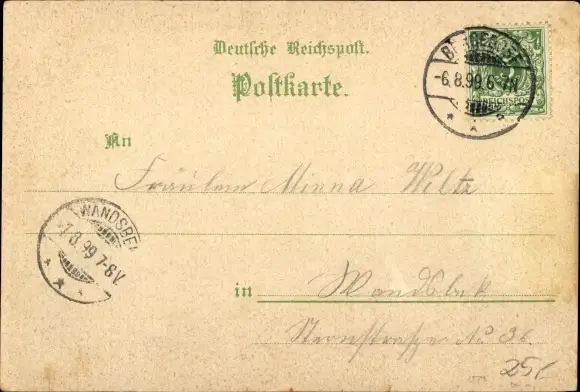 Deutsche Reichspost.
Postkarte.
-6.8.99.6-7N
REICHSPOST
An
Fräulein Minna Weltz
WANDSBEK
7.8.99 7-8V.
in Wandsbek
Sternstraße No 36.